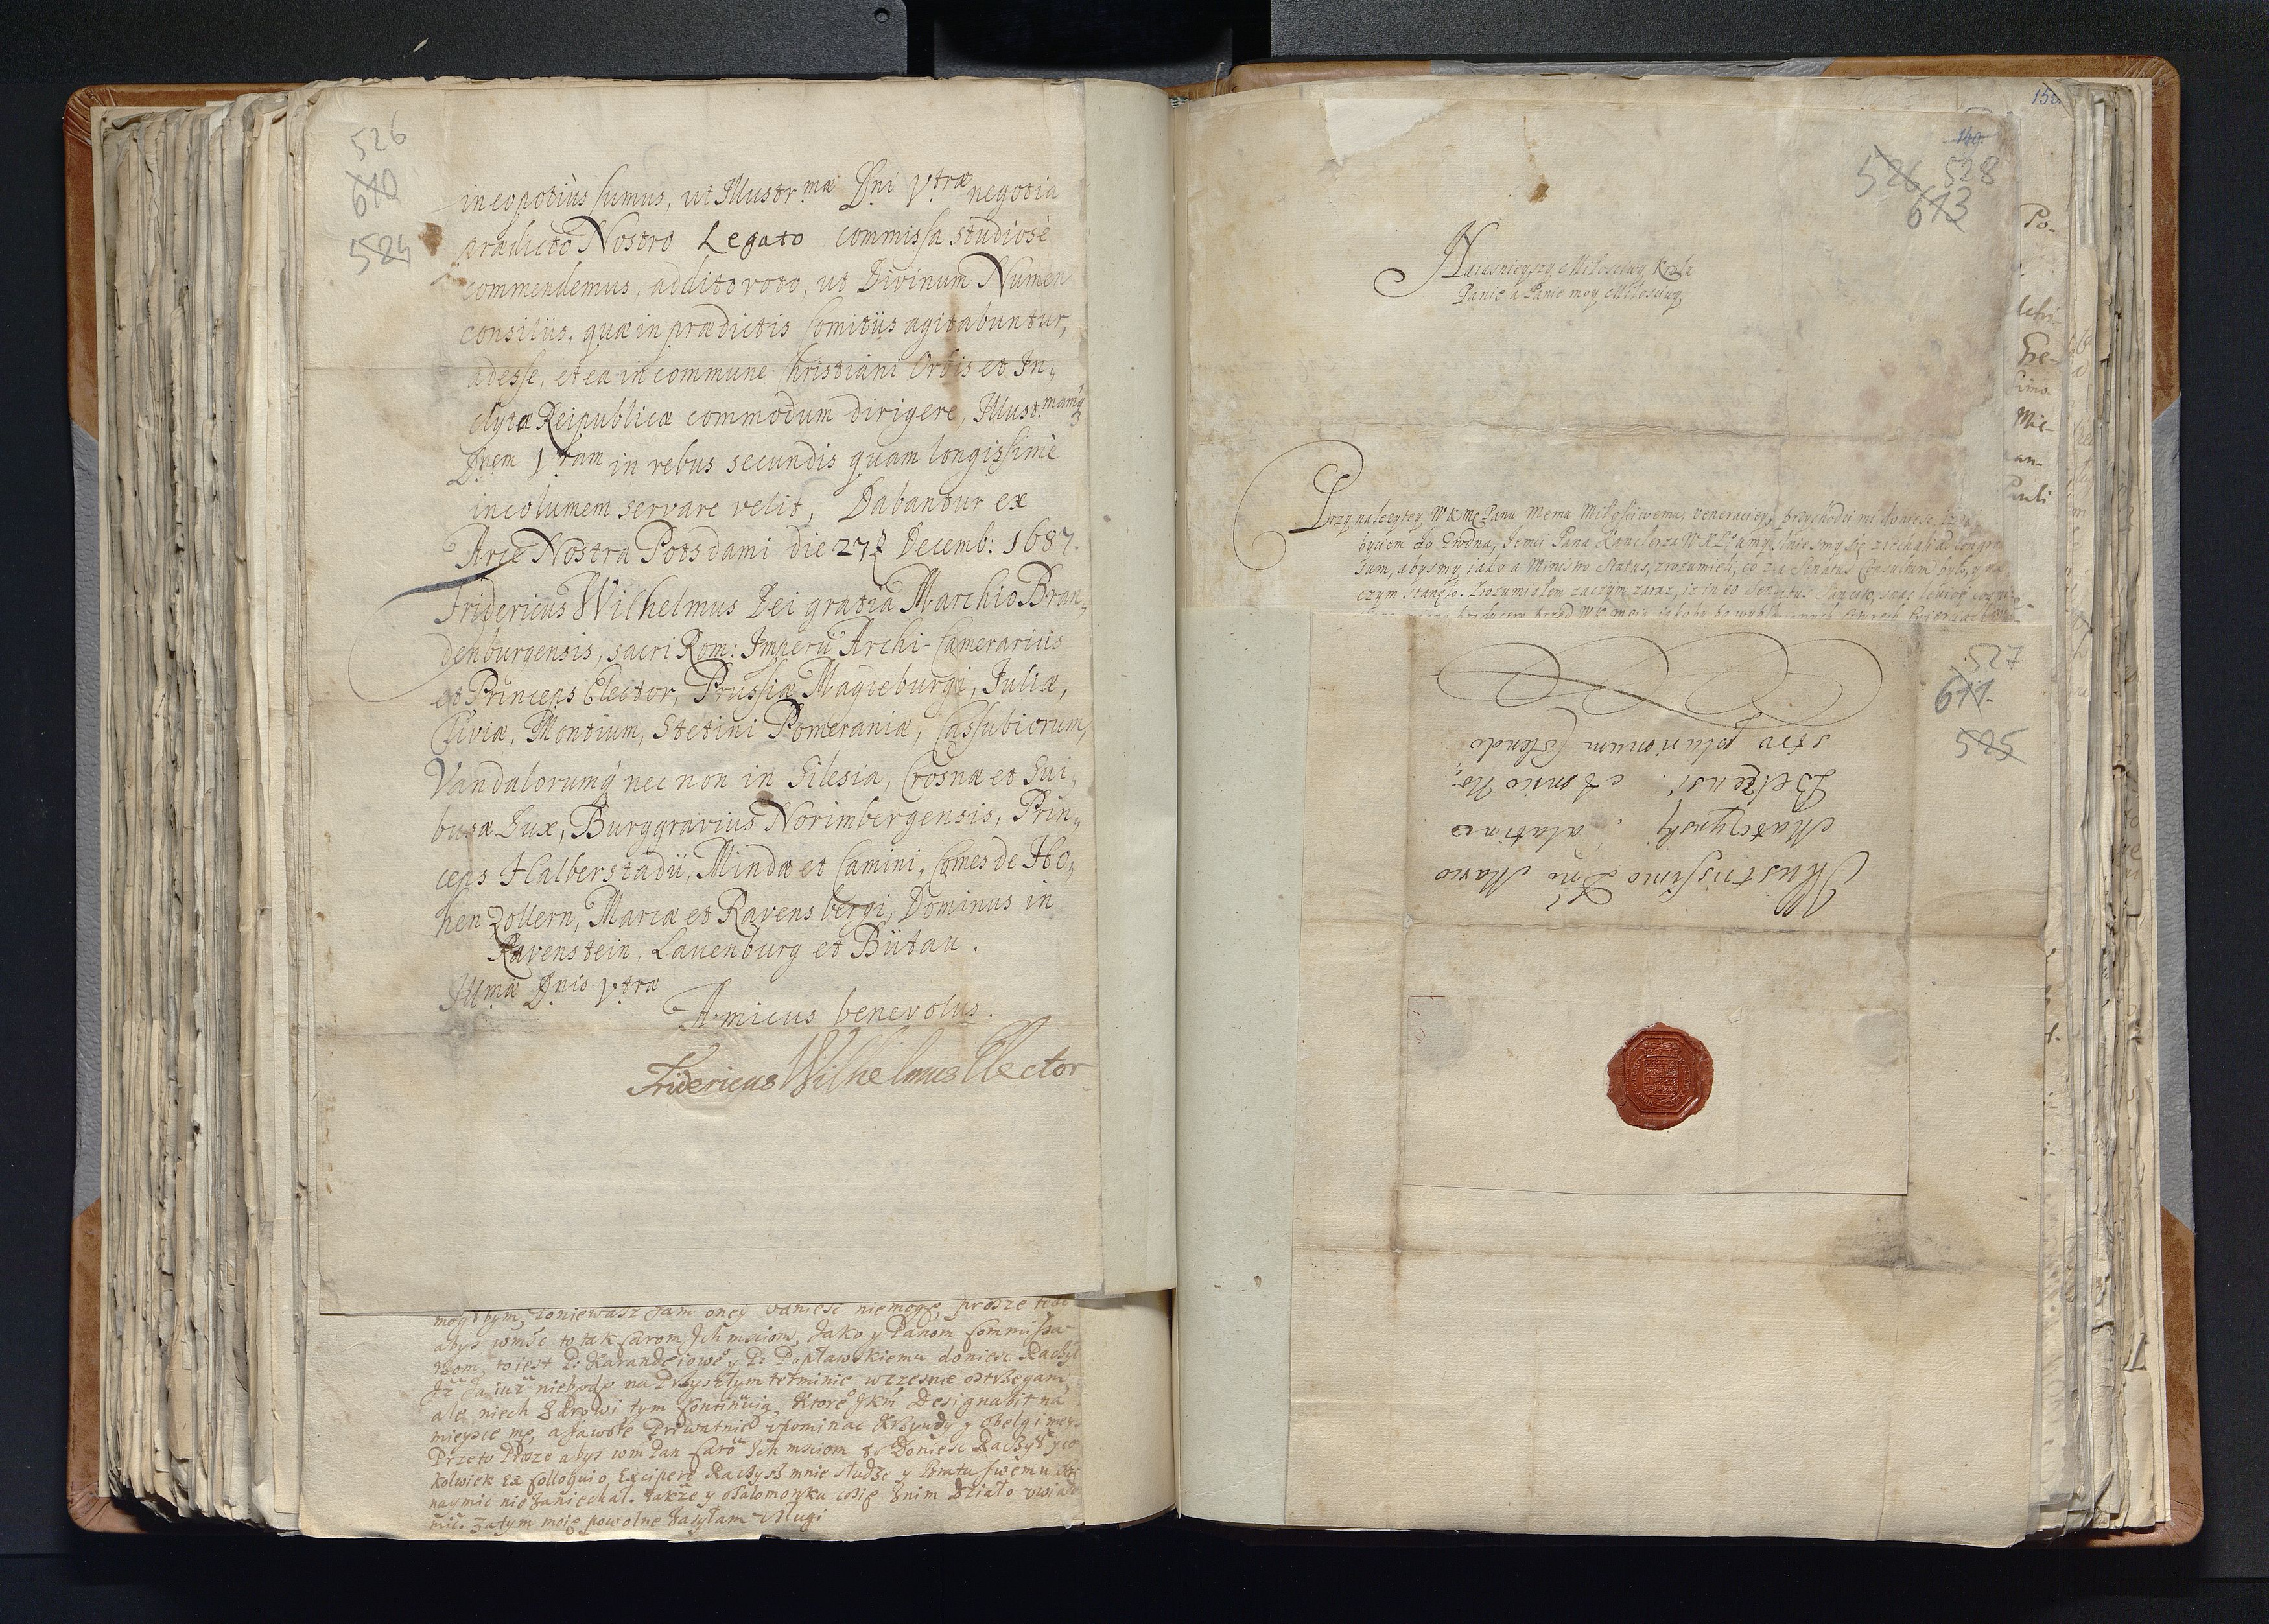 526
610
524
in eo potiùs sumus, ut Illustr.mæ Dni Vtræ negotia
prædicto Nostro Legato commissa studiosè
commendemus, addito voto, ut Divinum Numen
consiliis, quæ in prædictis Comitiis agitabuntur,
adesse, et ea in commune Christiani Orbis et In„
clytæ Reipublicæ commodum dirigere, Illust.mamq
Dnem Vram in rebus secundis quam longissimè
incolumem servare velit, Dabantur ex
Arce Nostra Potsdami die 27 Decemb: 1687.
Fridericus Wilhelmus Dei gratia Marchio Bran„
denburgensis, sacri Rom: Imperii Archi-Camerarius
et Princeps Elector, Prussiæ Magdeburgi, Juliæ,
Cliviæ, Montium, Stetini Pomeraniæ, Cassubiorum,
Vandalorumq nec non in Silesia, Crosnæ et Sui„
busæ Dux, Burggravius Norimbergensis, Prin„
ceps Halberstadii, Mindæ et Camini, Comes de Ho„
henzollern, Marcæ et Ravensbergi, Dominus in
Ravenstein, Lauenburg et Bütau.
Illmæ Dnis Vtræ
Amicus benevolus.
Fridericus Wilhelmus Elector
mogłbym, Poniewasz Sam oney odniesc niemogę, prosze
abys wmsc to tak Carom Ich msciom, Jako y Panom Commissa-
rzom, toiest P: Karandeiowi y P: Popławskiemu doniesc Raczył
Iż Ja iuż niebędę na Przyszłym terminie wczesnie ostrzegam,
ale niech Zdrowi tym Continuią Ktore JKM Designabit na
mieysce me, a Priwatnie wspominac Krzywdy y obelgi mey
Przeto Prosze abys wm Pan Ich msciom to Doniesc Raczył y co
kolwiek Ex Colloquio Excipere Raczysz mnie słudze y Bratu swemu
naymic niezaniechał. Także y oSalomonku cosię Znim Działo
mic. Zatym moie powolne Zasyłam sługi
150
149
526 528
613
Naiasnieyszy Miłosciwy Krolu
Panie a Panie moy Miłosciwy
Przy nalezytey WKMc Panu Memu Miłosciwemu veneraciey, przychodzi mi doniesc, iz
byciem do Grodna, Jemu Pana Kanclerza WXL umyslnie smy się ziechali ad Congres
sum, abysmy iako a Ministro Status, zrozumieli, co za Senatus Consultum było, y na
czym stanęło. Zrozumiałem zaczym zaraz, iz in eo Senatus
527
611.
525
Illustrissimo Dno Marco
Matczynsky Palatino
Belzensi. Amico No„
stro plurimum Colendo
Po-
Pre-
Mie-
an-